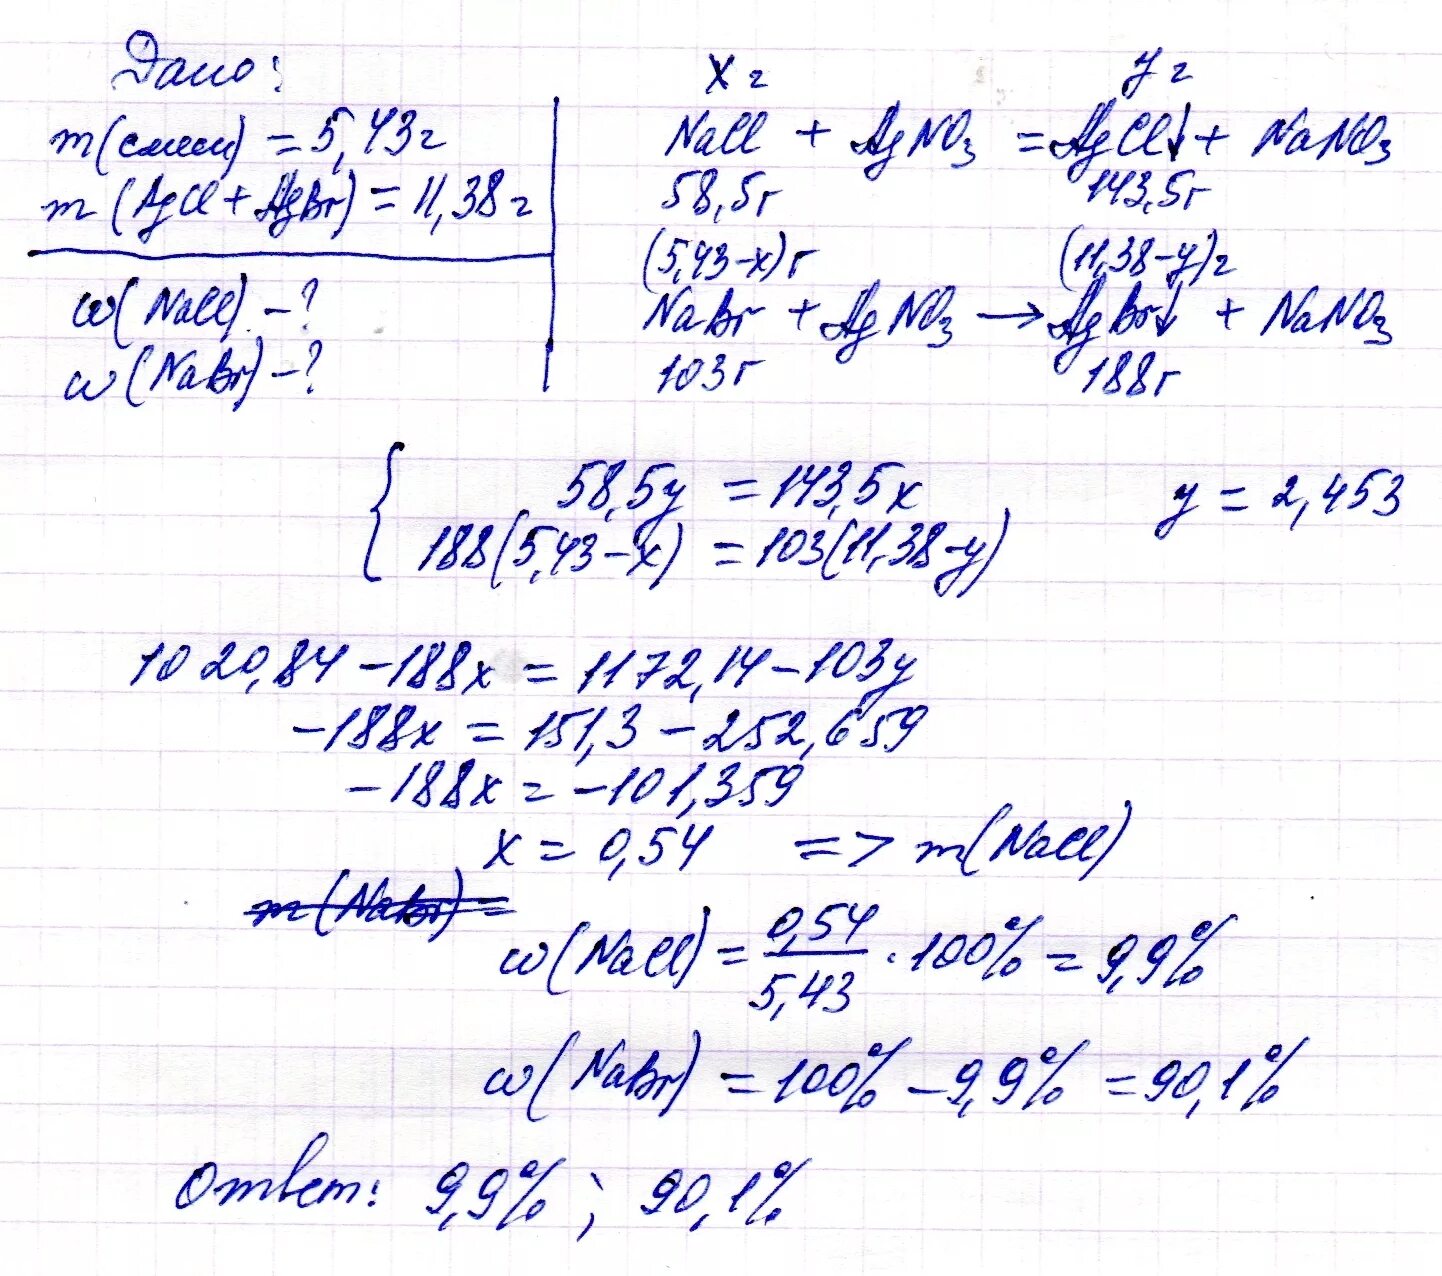 Дано:
m(смеси) = 5,43г
m(AgCl + AgBr) = 11,38г
ω(NaCl) - ?
ω(NaBr) - ?
x г y г
NaCl + AgNO3 = AgCl↓ + NaNO3
58,5г 143,5г
(5,43-x)г (11,38-y)г
NaBr + AgNO3 → AgBr↓ + NaNO3
103г 188г
{ 58,5y = 143,5x y = 2,453
188(5,43-x) = 103(11,38-y)
1020,84 - 188x = 1172,14 - 103y
-188x = 151,3 - 252,659
-188x = -101,359
x = 0,54 => m(NaCl)
m(NaBr) =
ω(NaCl) = 0,54/5,43 · 100% = 9,9%
ω(NaBr) = 100% - 9,9% = 90,1%
Ответ: 9,9% ; 90,1%